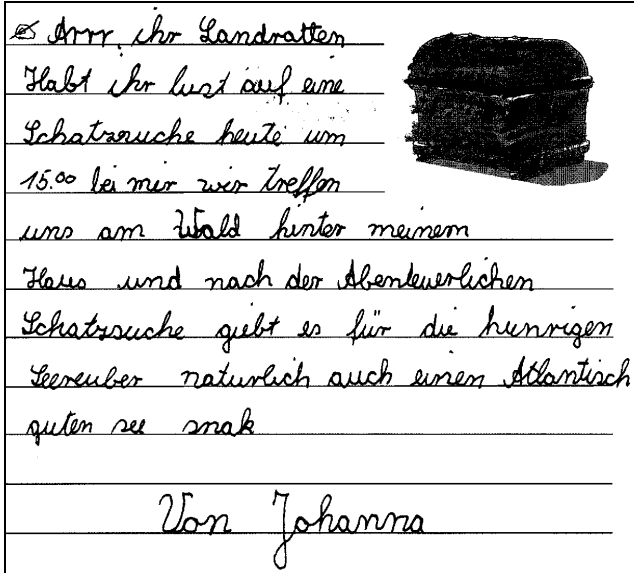 Arrr, ihr Landratten
Habt ihr lust auf eine
Schatzsuche heute um
15.00 bei mir wir treffen
uns am Wald hinter meinem
Haus und nach der Abenteuerlichen
Schatzsuche giebt es für die hunrigen
Seereuber naturlich auch einen Atlantisch
guten see snak
Von Johanna